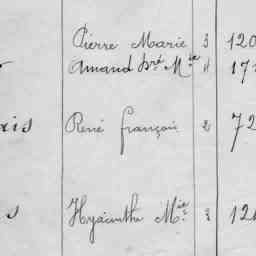 Pierre Marie 3 120
Amand fré Mie 4 17
ris René françois 2 72
s Hyacinthe Mie 3 12